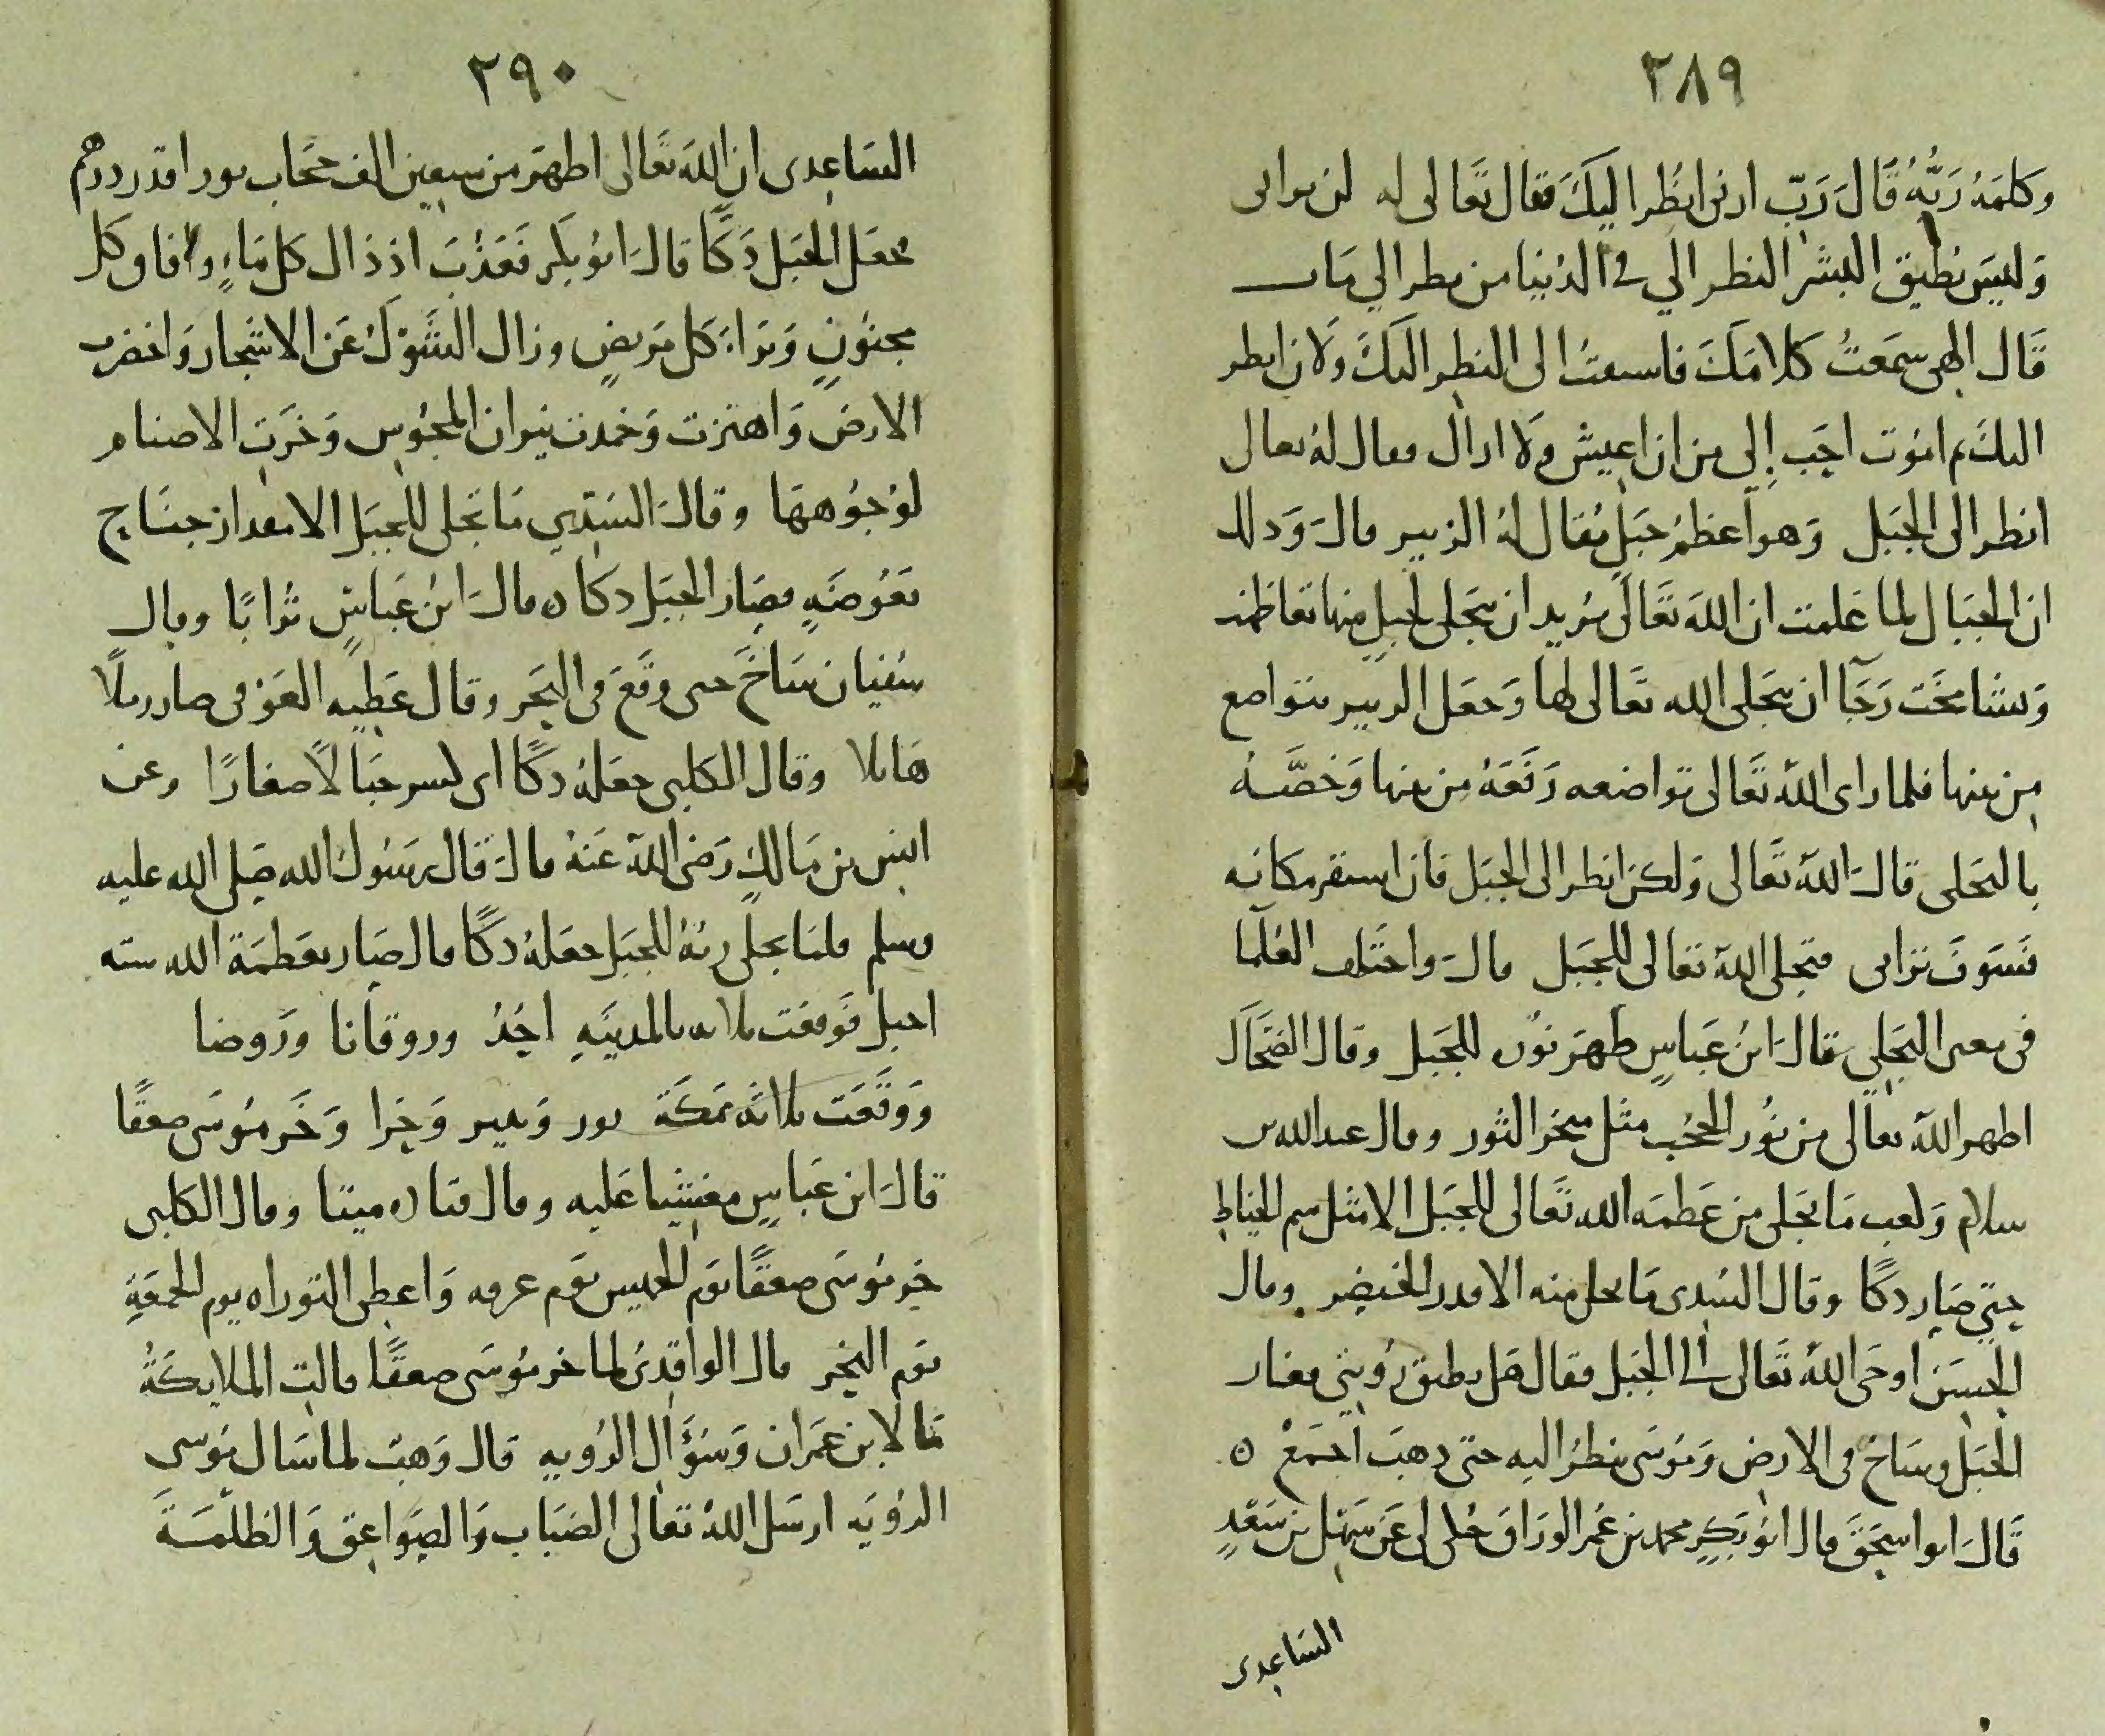 ٢٨٩
وكلمه ربه قال رب ارني انظر اليك فقال تعالى له لن تراني
وليس يطيق البشر النظر الي في الدنيا من نظر الي مات
قال الهي سمعت كلامك فاسقت الى النظر اليك ولان انظر
اليك ثم اموت احب إلي من ان اعيش ولا اراك فقال له تعالى
انظر الى الجبل وهو اعظم جبل يقال له الزبير قال وذلك
ان الجبال لما علمت ان الله تعالى يريد ان يتجلى لجبل منها تعاظمت
وتشامخت رجآ ان يتجلى الله تعالى لها وجعل الزبير يتواضع
من بينها فلما راى الله تعالى تواضعه رفعه من بينها وخصّه
بالتجلي قال الله تعالى ولكن انظر الى الجبل فان استقر مكانه
فسوف تراني فتجلى الله تعالى للجبل قال واختلف العلما
في معنى التجلي فقال ابن عباس ظهر نوره للجبل وقال الضحاك
اظهر الله تعالى من نور الحجب مثل منخر الثور وقال عبد الله بن
سلام وكعب ما تجلى من عظمه الله تعالى للجبل الا مثل سم الخياط
حتى صار دكا وقال السدى ما تجلى منه الا قدر الخنصر وقال
الحسن اوحى الله تعالى الى الجبل فقال هل يطيق رؤيتي فغار
الجبل وساخ في الارض وموسى ينظر اليه حتى ذهب اجمع ه
قال ابو اسحق قال ابو بكر محمد بن عمر الوراق حكى لي عن سهل بن سعد
الساعدى
٢٩٠
الساعدى ان الله تعالى اظهر من سبعين الف حجاب نورا قدر درهم
فجعل الجبل دكا قال ابو بكر فعذب اذ ذاك كل ماء وافاق كل
مجنون وبرا كل مريض وزال الشوك عن الاشجار واخضرت
الارض واهتزت وخمدت نيران المجوس وخرت الاصنام
لوجوهها وقال السدي ما تجلى للجبل الا مقدار جناح
بعوضه فصار الجبل دكا ه قال ابن عباس ترابا وقال
سفيان ساخ حتى وقع في البحر وقال عطيه العوفي صار رملا
هائلا وقال الكلبي جعله دكا اى كسر جبالا صغارا وعن
انس بن مالك رضي الله عنه قال قال رسول الله صلى الله عليه
وسلم فلما تجلى ربه للجبل جعله دكا قال صار بعظمة الله سته
اجبل فوقعت ثلاثه بالمدينه احد وروقانا ورضوا
ووقعت ثلاثه بمكة ثور وثبير وحرا وخر موسى صعقا
قال ابن عباس مغشيا عليه وقال قتاده ميتا وقال الكلبي
خر موسى صعقا يوم الخميس يوم عرفه واعطى التوراه يوم الجمعة
يوم النحر قال الواقدى لما خر موسى صعقا قالت الملايكة
مالابن عمران وسؤال الرويه قال وهب لما سال موسى
الرؤيه ارسل الله تعالى الضباب والصواعق والظلمة